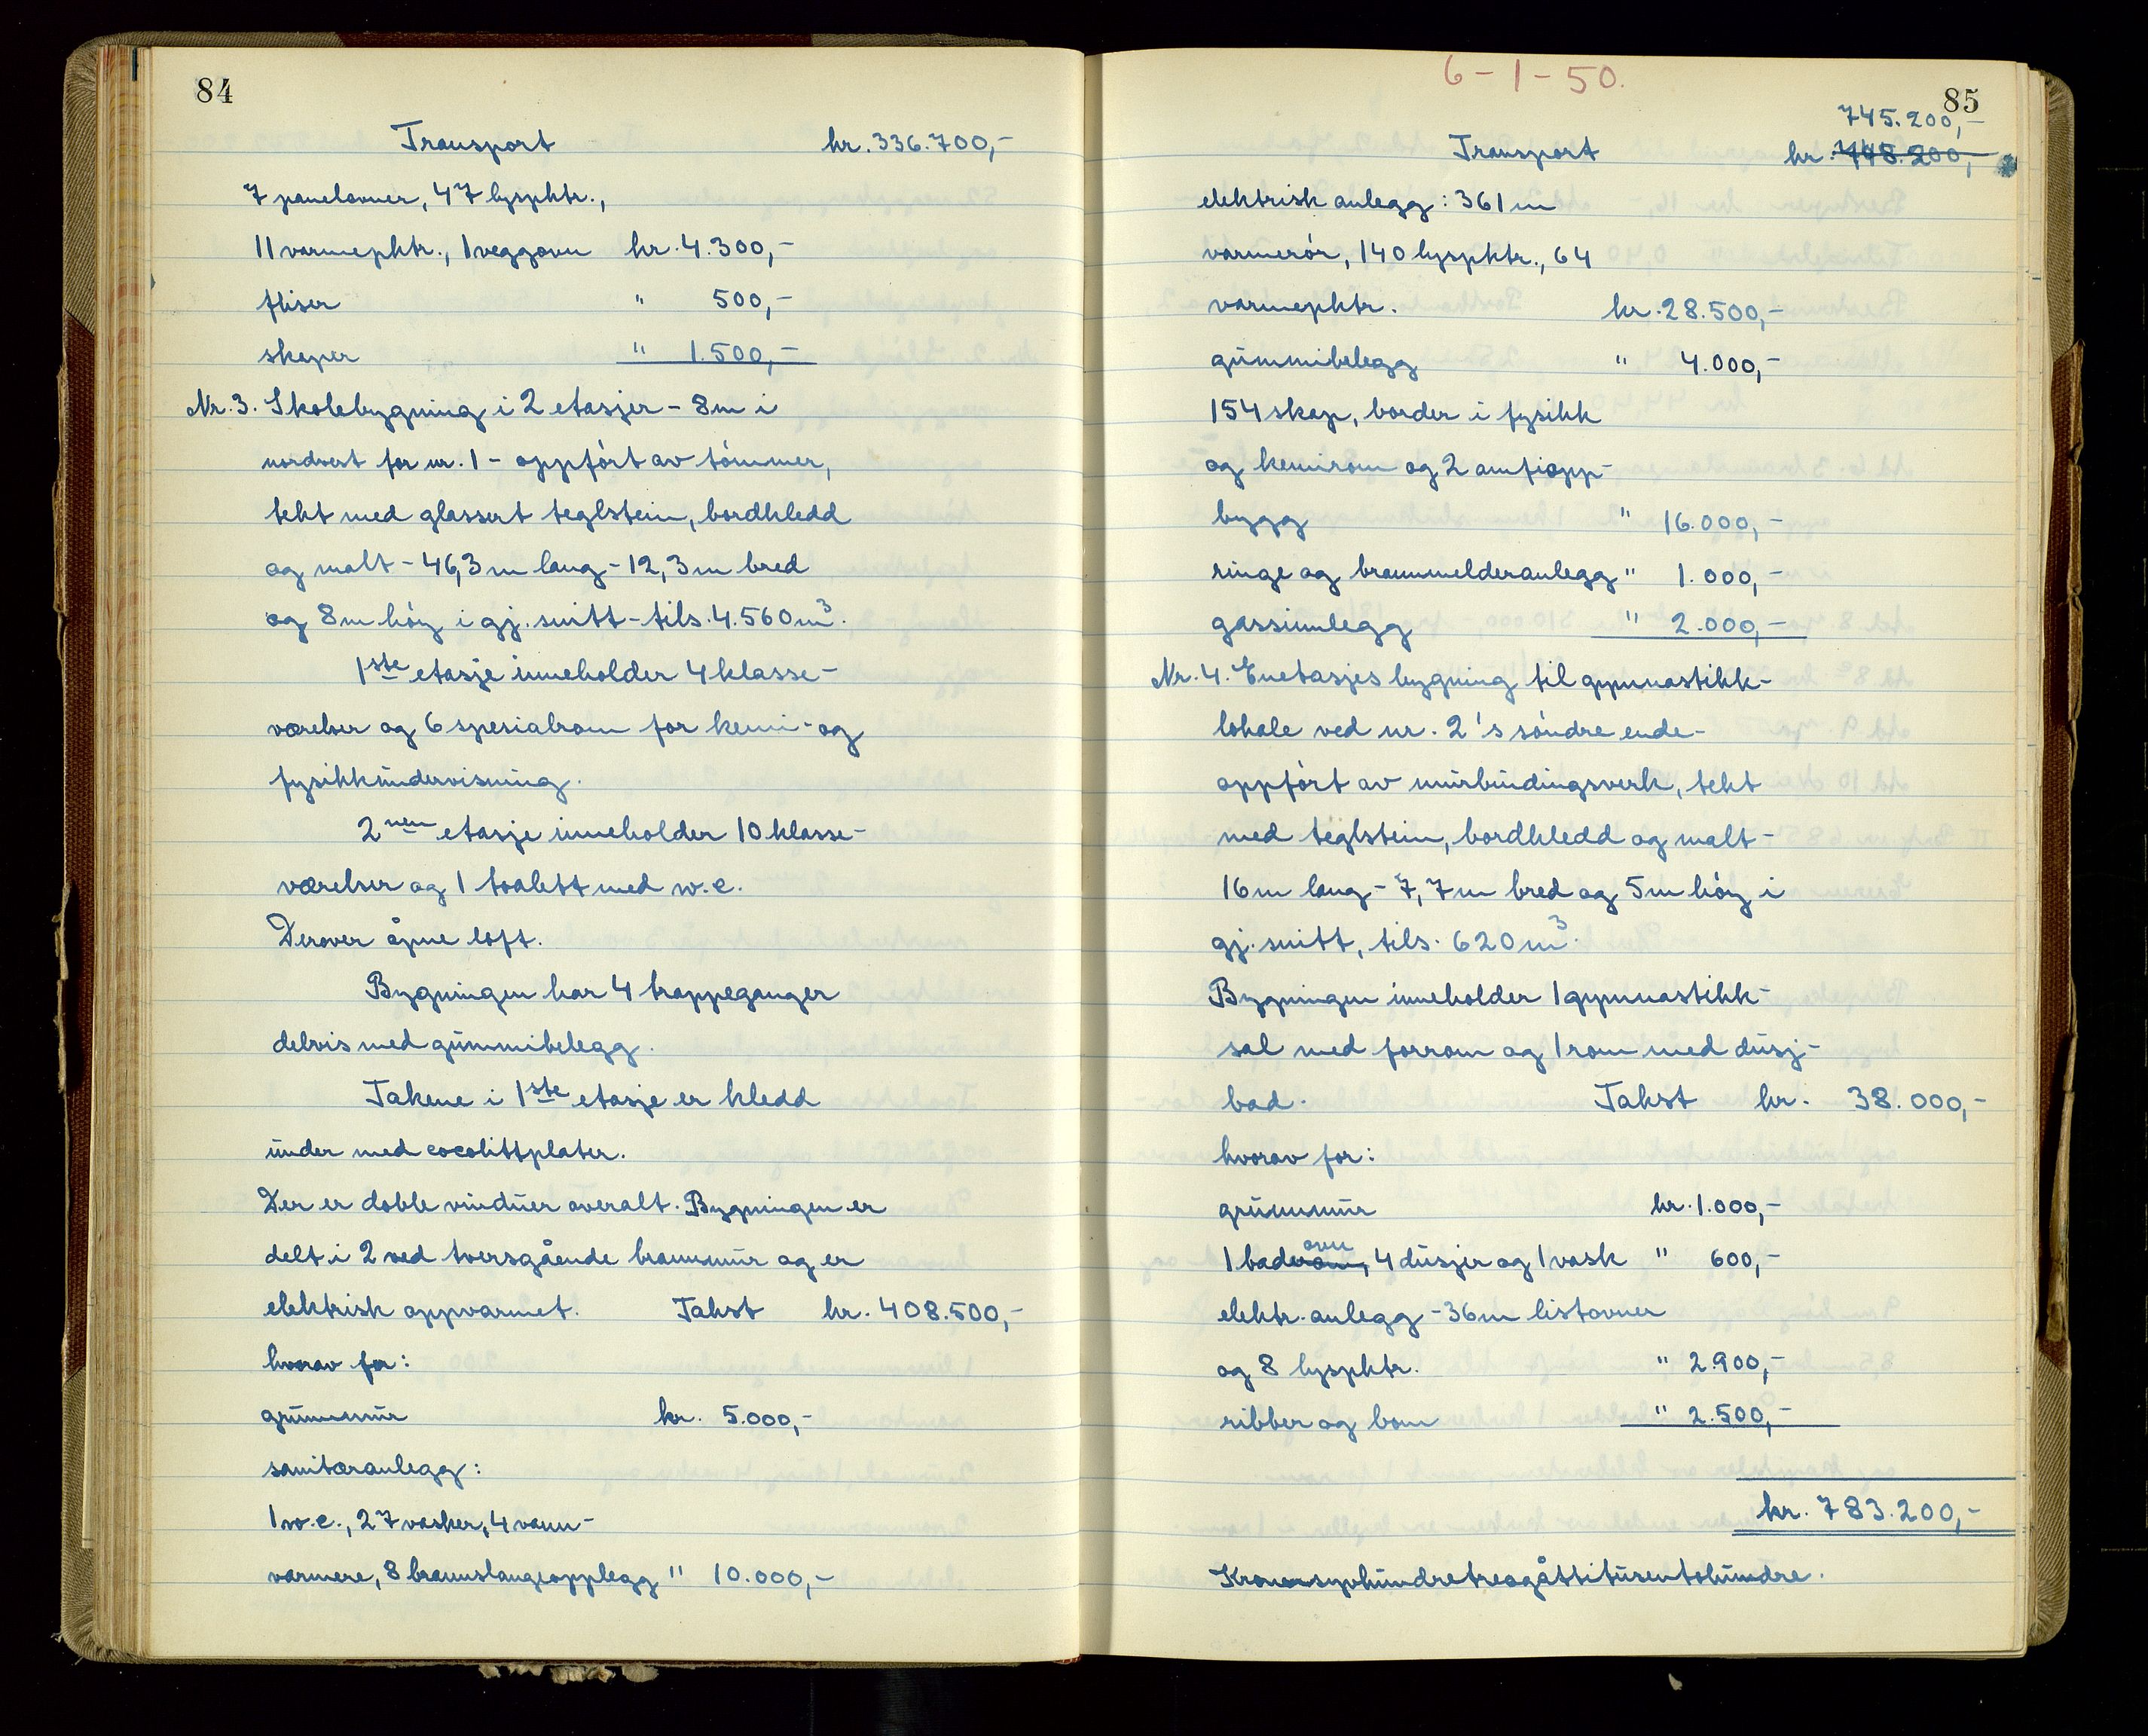 84
Transport kr. 336.700,-
7 panelovner, 47 lyspktr.,
11 varmepktr., 1 veggovn kr. 4.300,-
fliser " 500,-
skaper " 1.500,-
Nr. 3. Skolebygning i 2 etasjer - 8m i
nordvest for nr. 1 - oppført av tømmer,
tekt med glassert teglstein, bordkledd
og malt - 46,3m lang - 12,3m bred
og 8m høy i gj. snitt - tils. 4.560m³.
1ste etasje inneholder 4 klasse-
værelser og 6 spesialrom for kemi- og
fysikkundervisning.
2nen etasje inneholder 10 klasse-
værelser og 1 toalett med w.c.
Derover åpne loft.
Bygningen har 4 trappeganger
delvis med gummibelegg.
Takene i 1ste etasje er kledd
under med cocolittplater.
Der er doble vinduer overalt. Bygningen er
delt i 2 ved tversgående brannmur og er
elektrisk oppvarmet. Takst kr. 408.500,-
hvorav for:
grunnmur kr. 5.000,-
sanitæranlegg:
1 w.c., 27 vasker, 4 vann-
varmere, 8 brannslangeopplegg " 10.000,-
6-1-50.
85
745.200,-
Transport kr. 748.200,-
elektrisk anlegg: 361m
varmerør, 140 lyspktr., 64
varmepktr. kr. 28.500,-
gummibelegg " 4.000,-
154 skap, border i fysikk
og kemirom og 2 amfiopp-
bygg " 16.000,-
ringe og brannmelderanlegg " 1.000,-
gassinnlegg " 2.000,-
Nr. 4. Enetasjes bygning til gymnastikk-
lokale ved nr. 2's søndre ende-
oppført av murbindingsverk, tekt
med teglstein, bordkledd og malt -
16m lang - 7,7m bred og 5m høy i
gj. snitt, tils. 620m³.
Bygningen inneholder 1 gymnastikk-
sal med forrom og 1 rom med dusj-
bad. Takst kr. 38.000,-
hvorav for:
grunnmur kr. 1.000,-
ovn
1 baderom, 4 dusjer og 1 vask " 600,-
elektr. anlegg - 36m listovner
og 8 lyspktr. " 2.900,-
ribber og bom " 2.500,-
kr. 783.200,-
Kronersyvhundretreogåttitusentohundre.